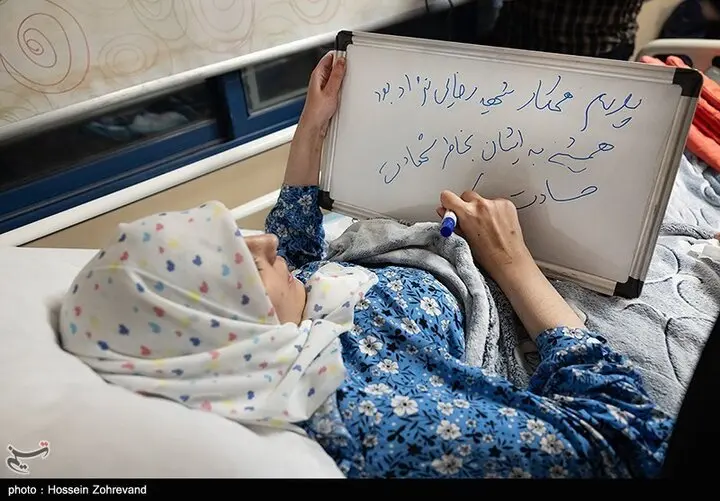 پدرم همکار شهید رضایی نژاد بود
همیشه به ایشان بخاطر شهادت
حسادت
photo : Hossein Zohrevand
تسنیم